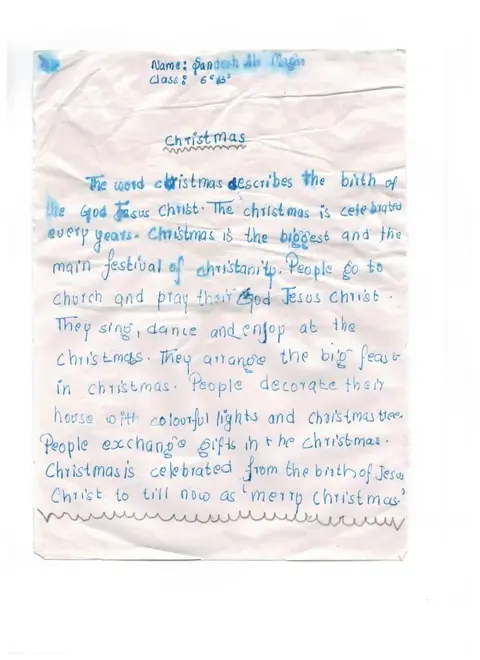 Name: Sandesh Ale Magar
Class: 6 'B'
Christmas
The word christmas describes the birth of
the God Jesus Christ. The christmas is celebrated
every years. Christmas is the biggest and the
main festival of christanity. People go to
church and pray their God Jesus Christ.
They sing, dance and enjop at the
Christmas. They arrange the big feast
in christmas. People decorate their
house with colourful lights and christmas tree.
People exchange gifts in the christmas.
Christmas is celebrated from the birth of Jesus
Christ to till now as 'merry Christmas.'